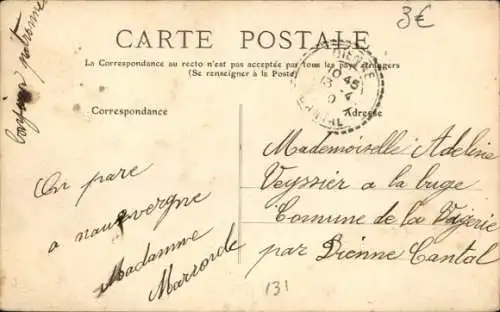 3€
CARTE POSTALE
La Correspondance au recto n'est pas acceptée par tous les pays étrangers
(Se renseigner à la Poste)
DIENNE
10 45
13 -4
CANTAL
Correspondance
Adresse
Mademoiselle Adeline
Veyssier a la buge
Comune de la Vigerie
par Dienne Cantal
On pare
a nauvergne
Madamme
Marrorde
131